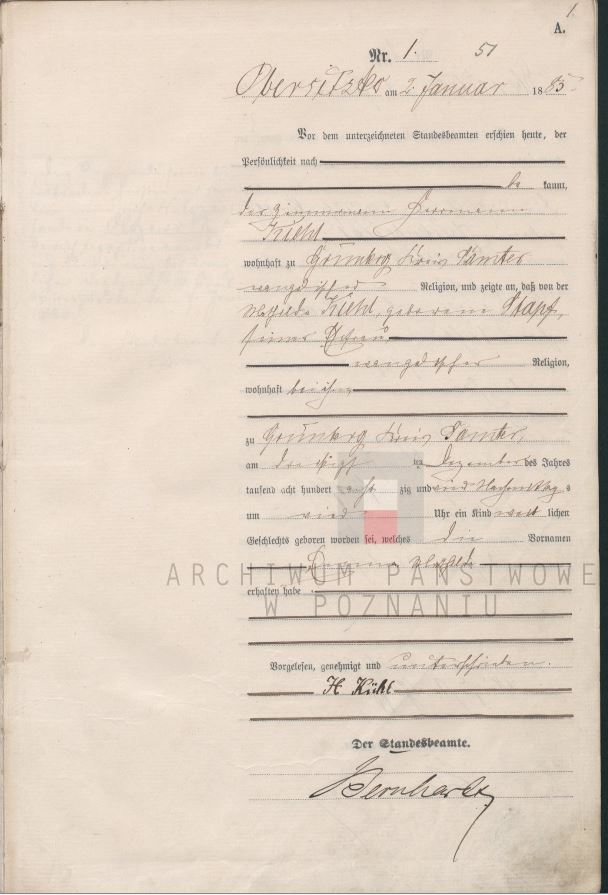 1.
A.
Nr. 1. 51
Obersitzko am 2. Januar 1885
Vor dem unterzeichneten Standesbeamten erschien heute, der
Persönlichkeit nach
be kannt,
der Zimmermann Herrmann
Kühl
wohnhaft zu Grünberg Kreis Samter
evangelischer Religion, und zeigte an, daß von der
Mathilde Kühl, geborene Stapf,
seiner Ehefrau
evangelischer Religion,
wohnhaft bei ihm
zu Grünberg Kreis Samter
am Dezember des Jahres
tausend acht hundert acht zig und vier Nachmittags
um vier Uhr ein Kind weib lichen
Geschlechts geboren worden sei, welches die Vornamen
Emma
erhalten habe.
Vorgelesen, genehmigt und unterschrieben.
H Kühl
Der Standesbeamte.
Bernhardt
ARCHIWUM PAŃSTWOWE
W POZNANIU